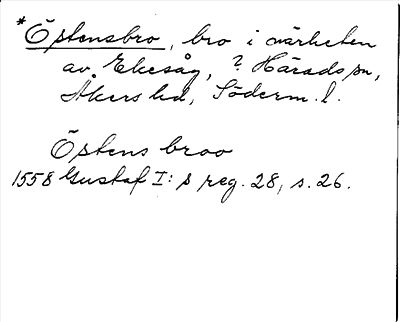 *Östensbro, bro i närheten
av Ekesåg, ? Härads sn,
Åkers hd, Söderm. l.
Östens broo
1558 Gustaf I:s reg. 28, s. 26.